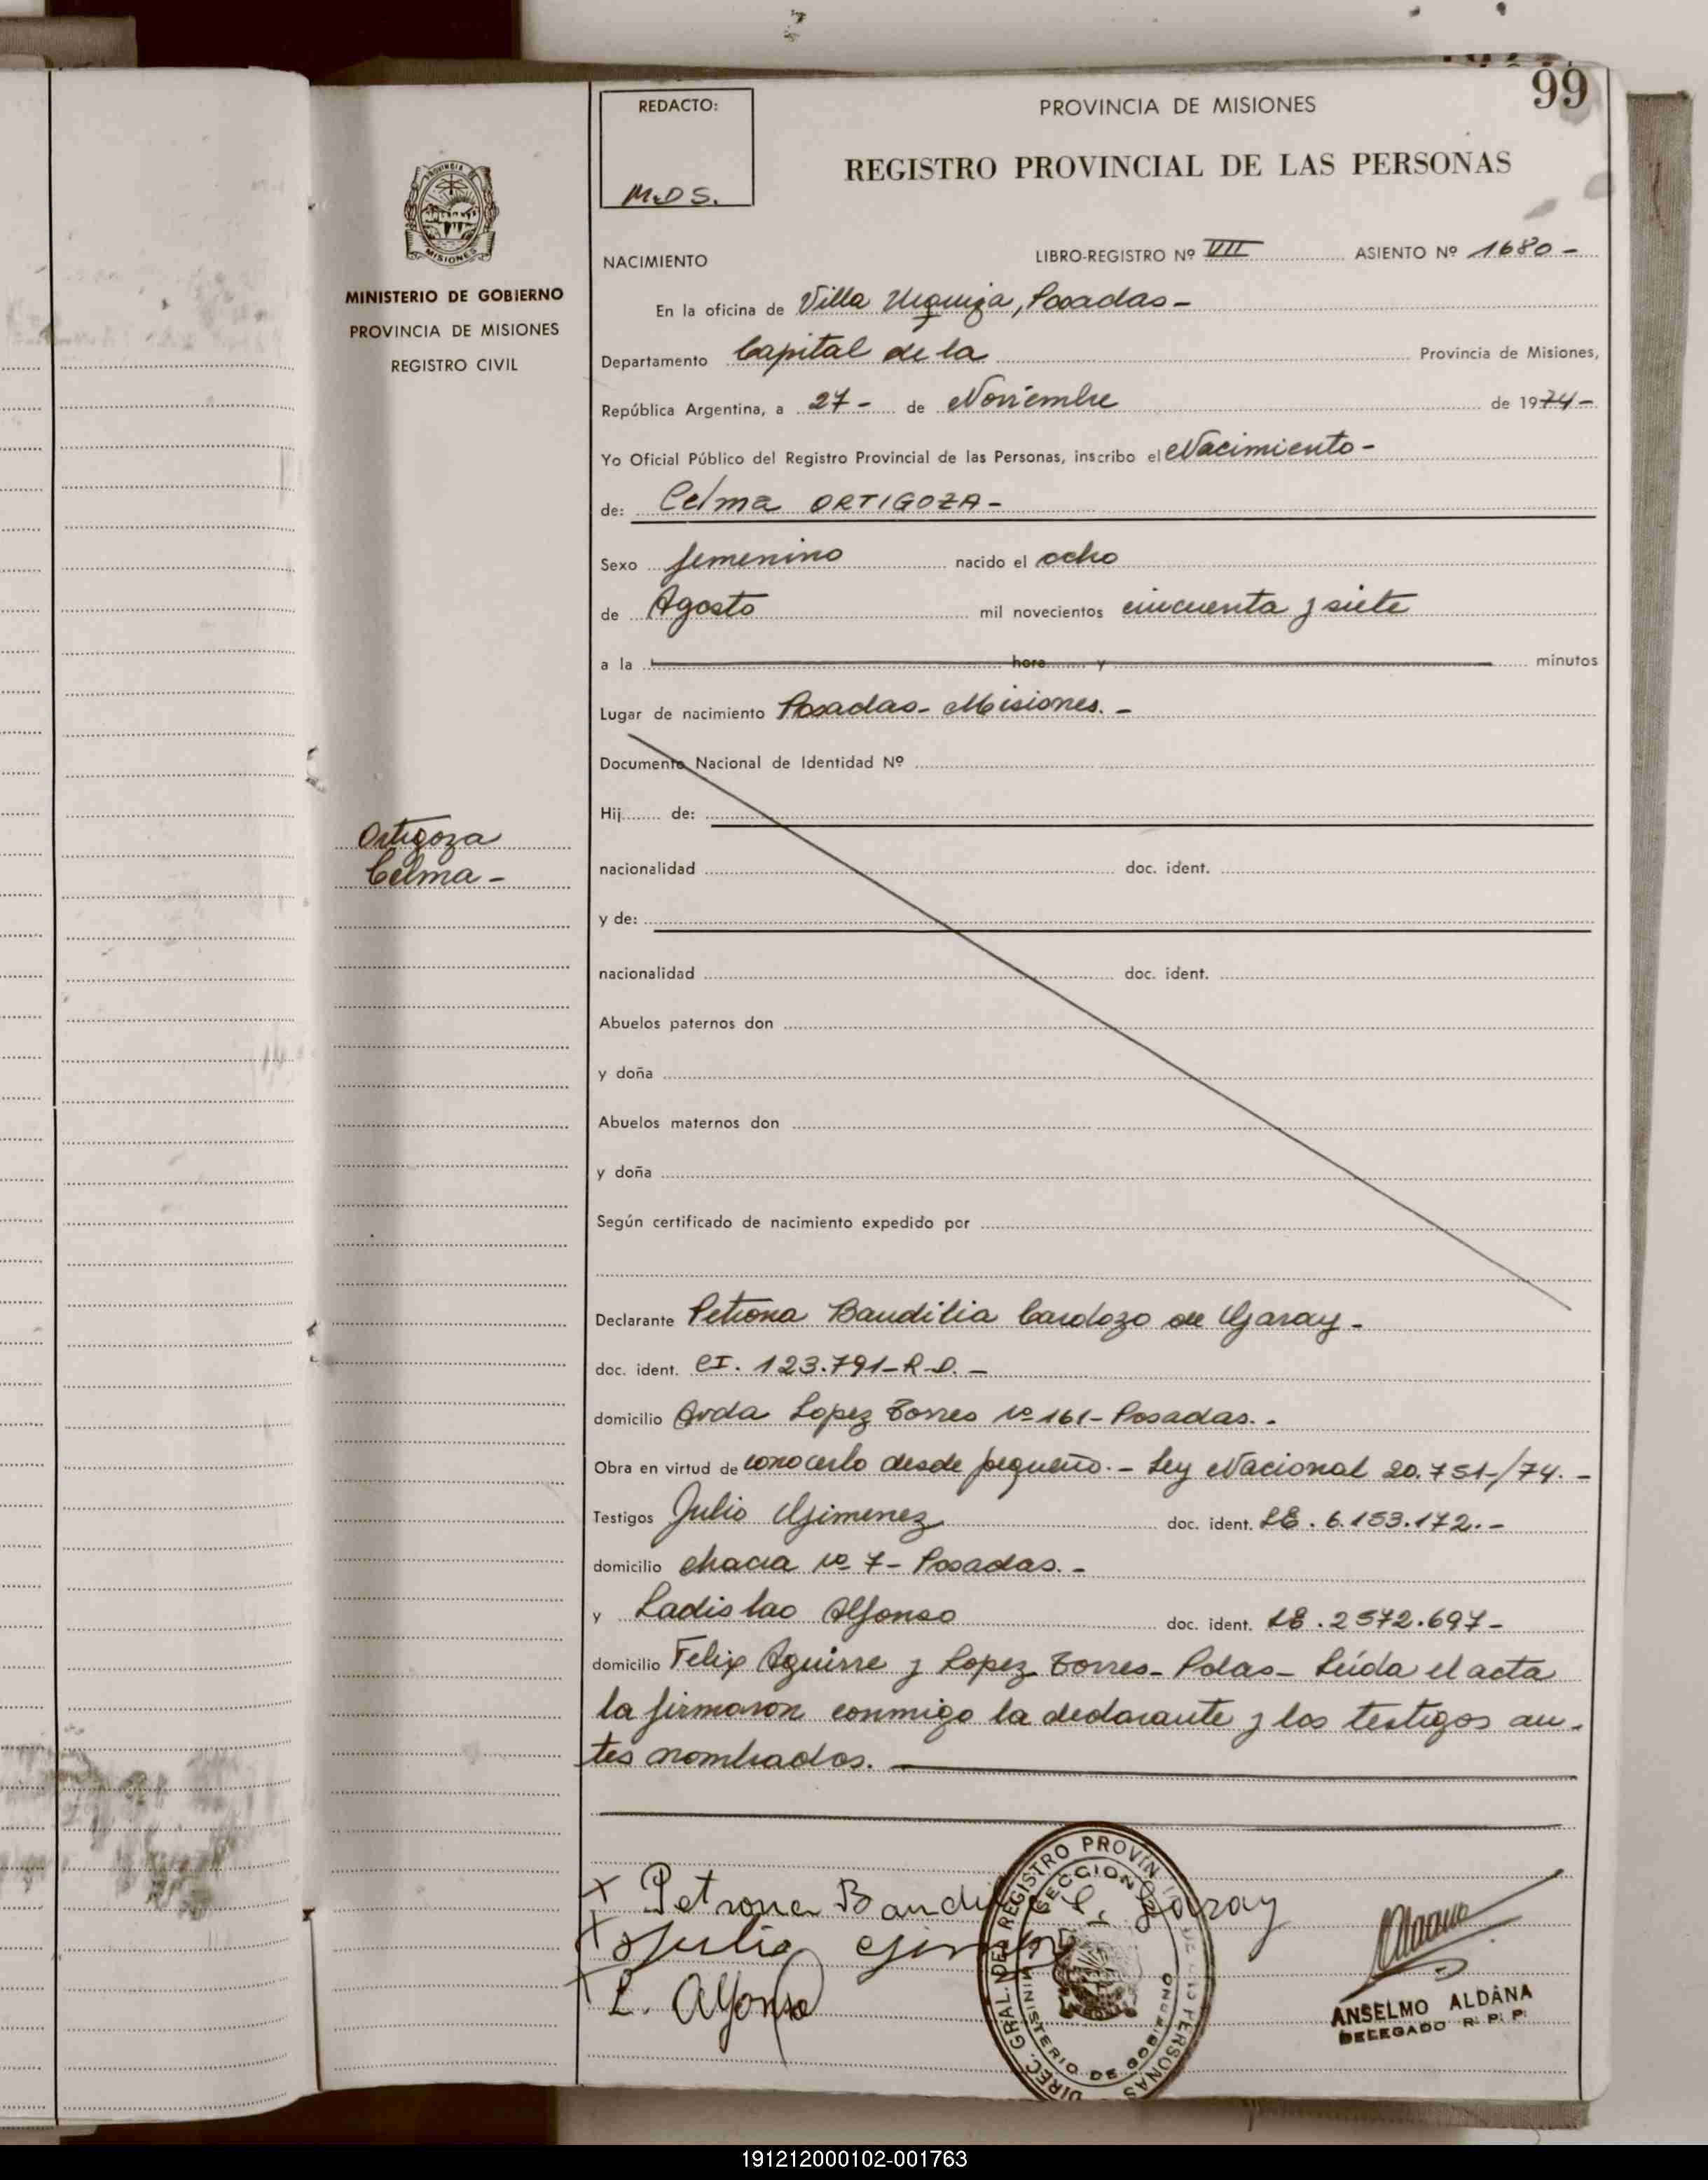 99
REDACTO:
M.D S.
PROVINCIA DE MISIONES
REGISTRO PROVINCIAL DE LAS PERSONAS
PROVINCIA DE
MISIONES
MINISTERIO DE GOBIERNO
PROVINCIA DE MISIONES
REGISTRO CIVIL
NACIMIENTO LIBRO-REGISTRO Nº VII ASIENTO Nº 1680 -
En la oficina de Villa Urquiza, Posadas -
Departamento Capital de la Provincia de Misiones,
República Argentina, a 27 - de Noviembre de 1974 -
Yo Oficial Público del Registro Provincial de las Personas, inscribo el Nacimiento -
de: Celma ORTIGOZA -
Sexo femenino nacido el ocho
de Agosto mil novecientos cincuenta y siete
a la hora y minutos
Lugar de nacimiento Posadas - Misiones. -
Documento Nacional de Identidad Nº
Hij de:
Ortigoza
Celma -
nacionalidad doc. ident.
y de:
nacionalidad doc. ident.
Abuelos paternos don
y doña
Abuelos maternos don
y doña
Según certificado de nacimiento expedido por
Declarante Petrona Baudilia Cardozo de Garay -
doc. ident. CI. 123.791 - R.P. -
domicilio Avda Lopez Torres Nº 161 - Posadas. -
Obra en virtud de conocerlo desde pequeño. - Ley Nacional 20.751-/74. -
Testigos Julio Gimenez doc. ident. LE. 6.153.172. -
domicilio chacra Nº 7 - Posadas. -
y Ladislao Alfonso doc. ident. LE. 2572.697 -
domicilio Felix Aguirre y Lopez Torres - Pdas - Leída el acta
la firmaron conmigo la declarante y los testigos an-
tes nombrados.
x Petrona Baudi C. Garay
x Julio Gimenez
x L. Alfonso
DIREC. GRAL. DEL REGISTRO PROVIN DE LAS PERSONAS
SECCION
MINISTERIO DE GOBIERNO
ANSELMO ALDANA
DELEGADO R. P. P.
191212000102-001763